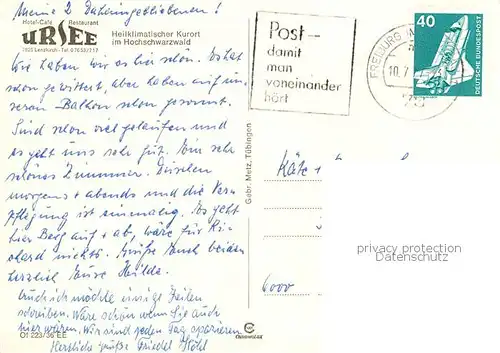 Meine 2 Daheimgebliebenen!
Hotel-Café Restaurant
URSEE
7825 Lenzkirch · Tel. 07653/717
Heilklimatischer Kurort
im Hochschwarzwald
Wie haben wir es hier schön. Es hat
schon gewittert, aber haben auf un-
seren Balkon schon gesonnt.
Sind schon viel gelaufen und
es geht uns sehr gut. Ein sehr
schönes Zimmer. Duschen
morgens + abends und die Ver-
pflegung ist einmalig. Es geht
hier Berg auf + ab, wäre für Ri-
chard nichts. Grüße Euch beiden
herzlich Eure Hilde.
Auch ich möchte einige Zeilen
schreiben. Wäre schön wenn Sie auch
hier wären. Wir sind jeden Tag spazieren
Herzliche Grüße Friedel
OI 223/36 EE
Gebr. Metz, Tübingen
Post –
damit
man
voneinander
hört
FREIBURG
10.7
40
DEUTSCHE BUNDESPOST
Käte +
6000
privacy protection
Datenschutz